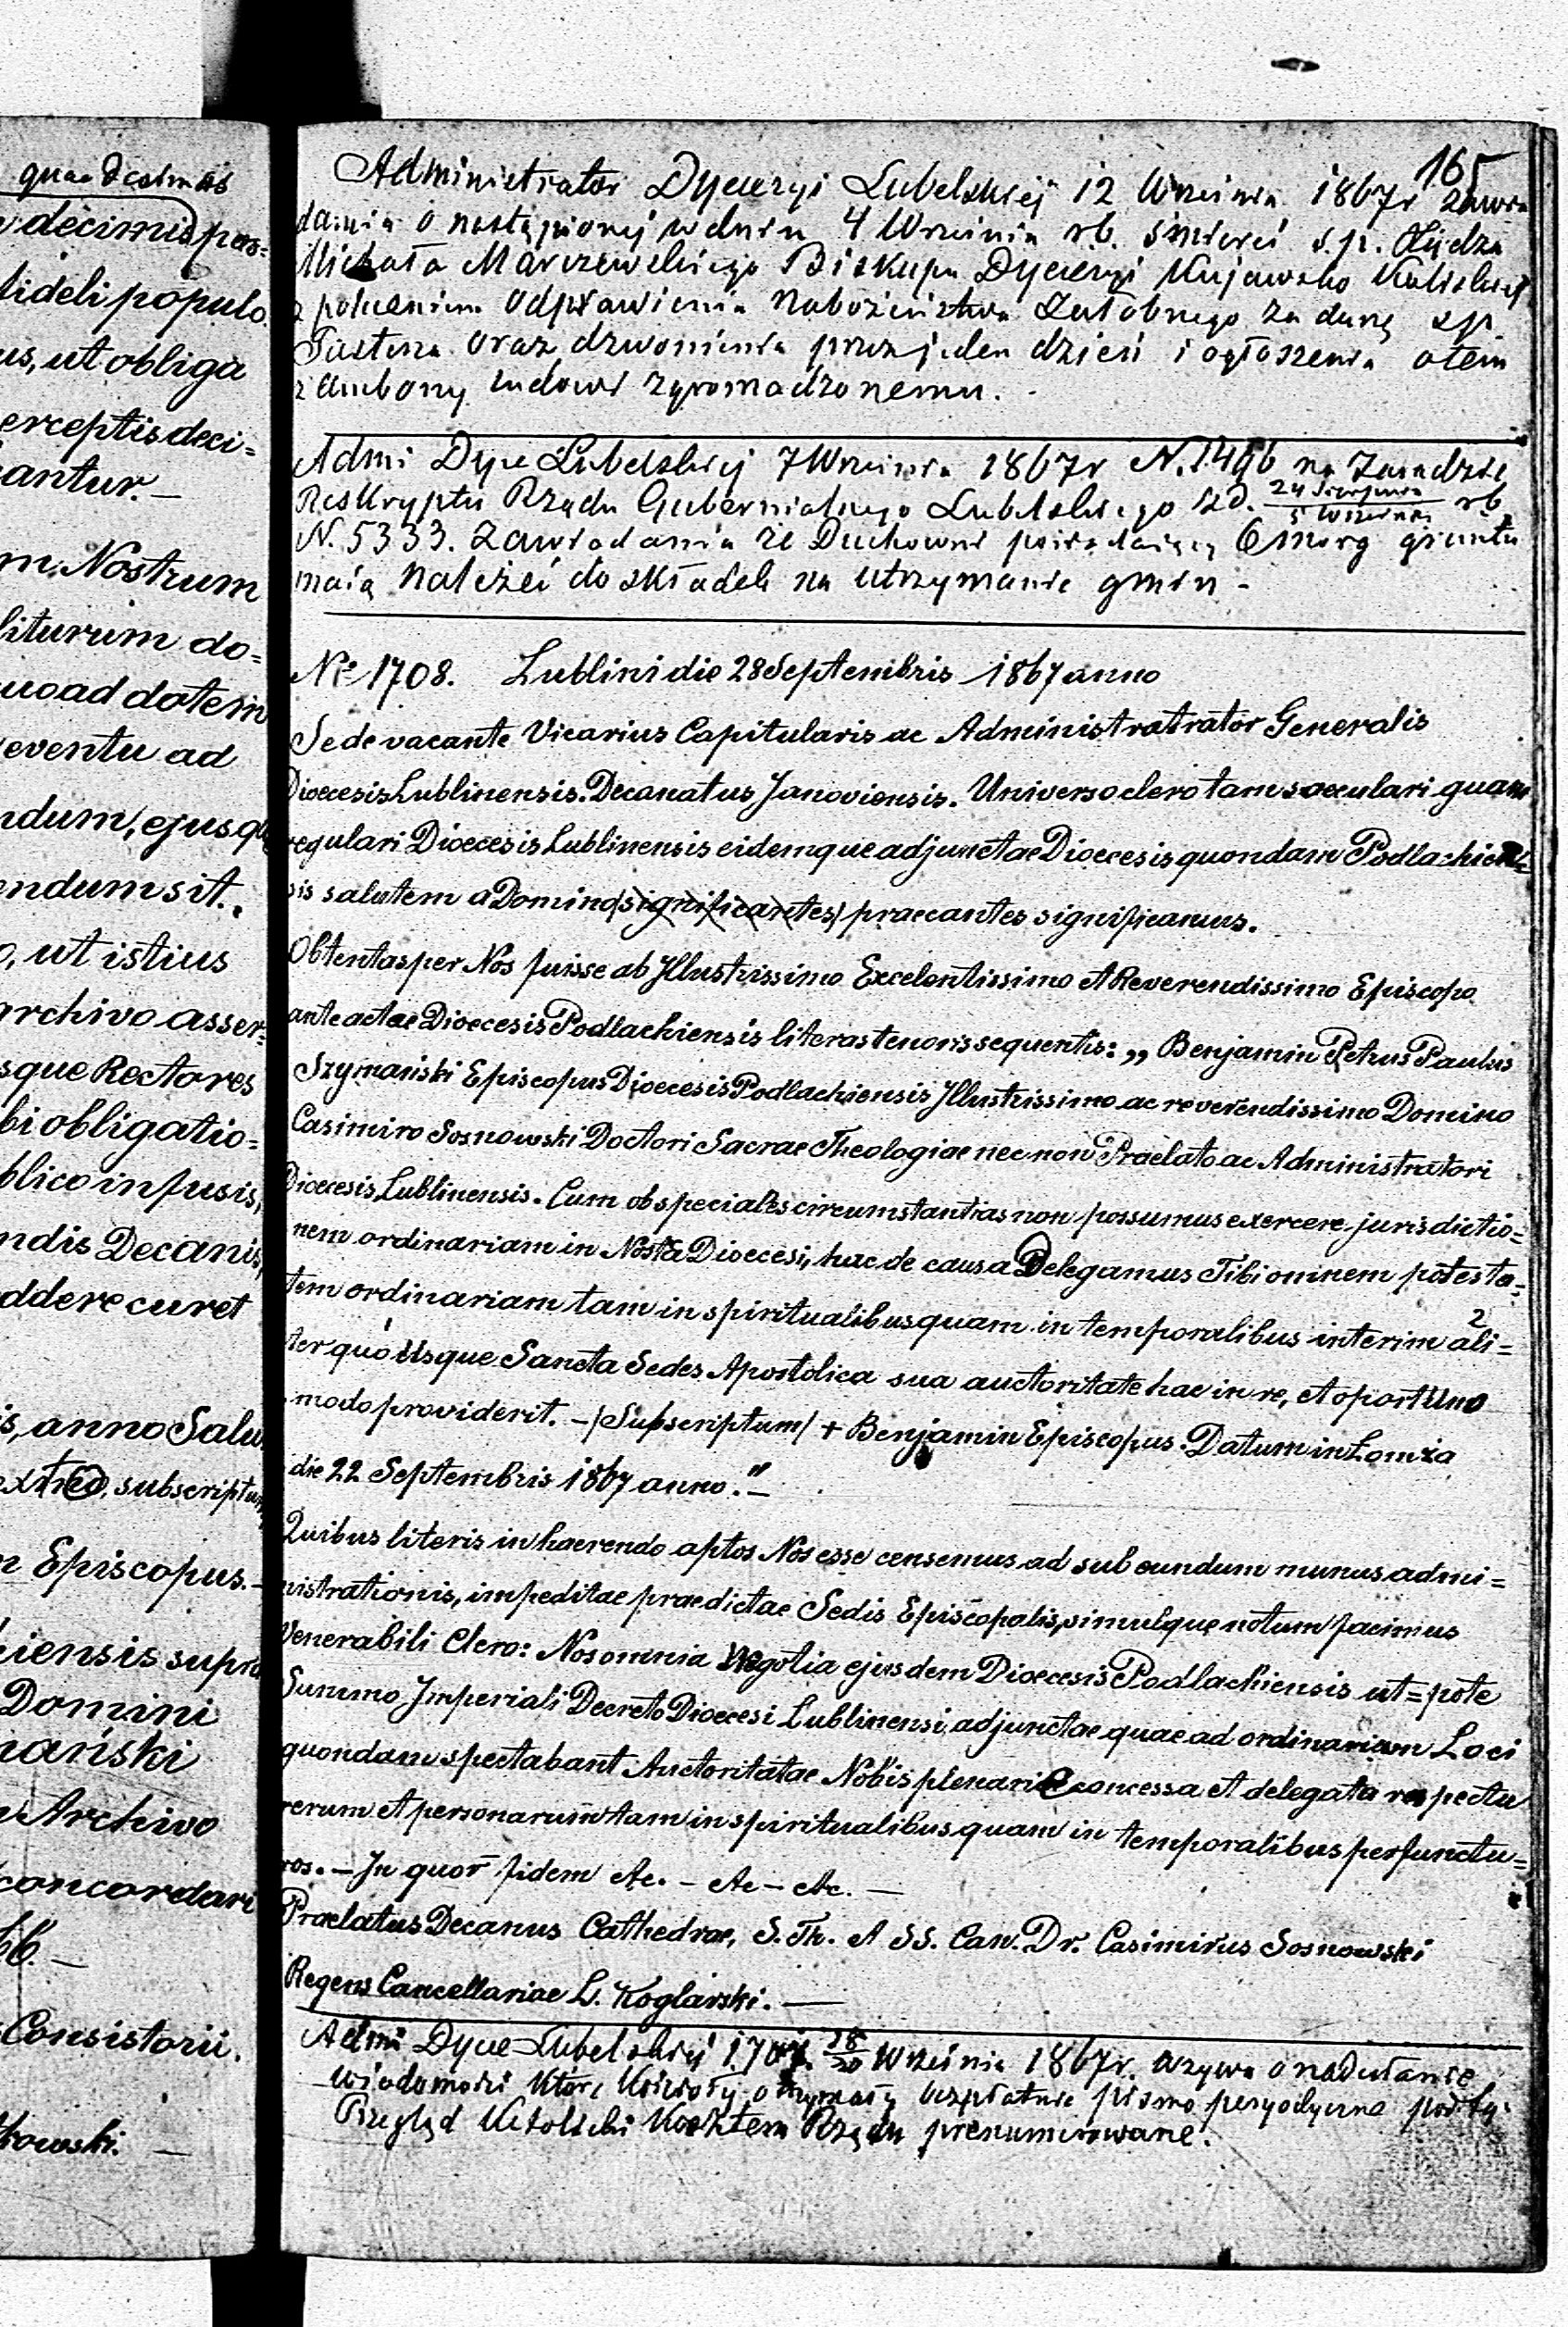 quae decimas
decimis per=
fideli populo
us, ut obliga
erceptis deci=
antur. —
m Nostrum
liturum do=
uoad dotem
eventu ad
ndum, ejusque
endum sit.
o, ut istius
archivo asser=
sque Rectores
bi obligatio=
blico infusis,
ndis Decanis,
ddere curet
is, anno Salu
subscriptum
n Episcopus. —
iensis supra
Domini
mański
Archivo
concordari
Consistorii.
kowski. —
165
Administrator Dyecezyi Lubelskiej 12 Września 1867r zawia
damia o nastąpionej w dniu 4 Września rb. śmierci s.p. Xiędza
Michała Marszewskiego Biskupa Dyecezyi Kujawsko Kaliskiej
z poleceniem odprawienia Nabożeństwa Żałobnego za duszę sp.
Pasterza oraz dzwonienia przez jeden dzień i ogłoszenia o tem
z ambony ludowi zgromadzonemu. -
Admi Dyce Lubelskiej 7 Września 1867r N. 1466 na Zasadzie
Reskryptu Rządu Gubernialnego Lubelskiego z D. 24 Sierpnia / 5 Września rb
N. 5333. Zawiadamia że Duchowni posiadający 6 morg gruntu
maią należeć do składek na utrzymanie gmin -
No 1708. Lublini die 28 Septembris 1867 anno
Sede vacante Vicarius Capitularis ac Administratrator Generalis
Dioecesis Lublinensis. Decanatus Janoviensis. Universo clero tam saeculari quam
regulari Dioecesis Lublinensis eidemque adjunctae Dioecesis quondam Podlachien
sis salutem a Domino (significantes) praecantes significamus.
Obtentas per Nos fuisse ab Illustrissimo Excelentissimo et Reverendissimo Episcopo
ante actae Dioecesis Podlachiensis literas tenoris sequentis: „ Benjamin Petrus Paulus
Szymański Episcopus Dioecesis Podlachiensis Illustrissimo ac reverendissimo Domino
Casimiro Sosnowski Doctori Sacrae Theologiae nec non Praelato ac Administratori
Dioecesis Lublinensis. Cum ob speciales circumstantias non possumus exercere jurisdictio=
nem ordinariam in Nostā Dioecesi, hac de causa Delegamus Tibi omnem potesta=
tem ordinariam tam in spiritualibus quam in temporalibus interim ali=
ter quo usque Sancta Sedes Apostolica sua auctoritate hac in re, et oportuno
modo providerit. — /Subscriptum/ + Benjamin Episcopus. Datum in Łomża
die 22 Septembris 1867 anno." —
Quibus literis in haerendo aptos Nos esse censemus ad sub eundum munus admi=
nistrationis, impeditae praedictae Sedis Episcopalis, simulque notum facimus
Venerabili Clero: Nos omnia Negotia ejusdem Dioecesis Podlachiensis ut=pote
Summo Imperiali Decreto Dioecesi Lublinensi adjunctae quae ad ordinarium Loci
quondam spectabant Auctoritatae Nobis plenarie concessa et delegata respectu
rerum et personarum tam in spiritualibus quam in temporalibus perfunctu=
ros. — In quor̄ fidem etc. — etc — etc. —
Praelatus Decanus Cathedrae, S. Th. et SS. Can. Dr. Casimirus Sosnowski
Regens Cancellariae L. Koglarski. —
Admi Dyce Lubelskiej 18/30 Września 1867r. wzywa o nadesłanie
wiadomości które Kościoły otrzymały bezpłatnie pismo peryodyczne
Przegląd Katolicki kosztem Rządu prenumerowane.